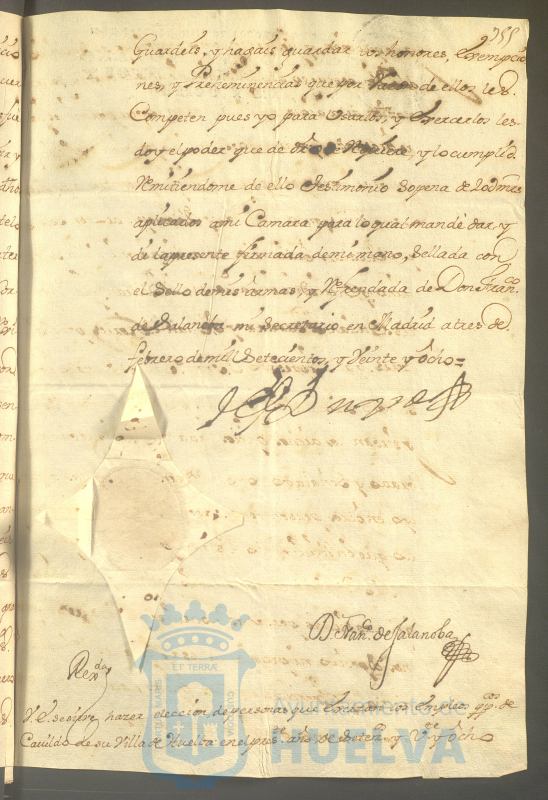 355
Guardeis, y hagais guardar los honores, Exempcio
nes, y Preheminencias que por razon de ellos les
Competen pues yo para Usarlos, y Exercerlos les
doy el poder que de se requiere, y lo cumplid
Remitiendome de ello Testimonio so pena de mrs
aplicados a mi Camara para lo qual mandé dar, y
di la presente firmada de mi mano, Sellada con
el Sello de mis armas, y Refrendada de Don Fran.co
de Salanoba mi Secretario en Madrid a tres de
febrero de mill Setecientos, y Veinte y ocho =
D. Fran.co de Salanoba
Rex.da
V. E. se sirve hazer elección de personas que exerzan los Empleos pp.cos de
Cavildo de su Villa de Huelva en el pres.te año de Seteci.os y V.te y ocho
ET TERRÆ
Ayuntamiento de
HUELVA